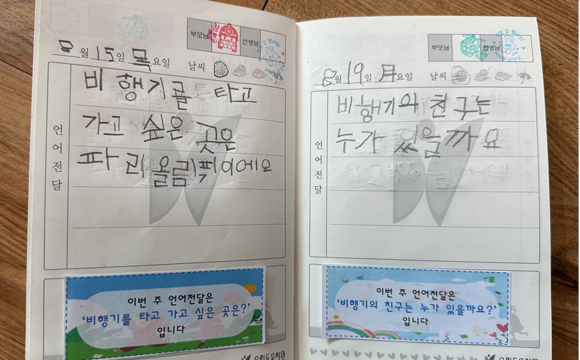 부모님 선생님
8월 15일 목요일 날씨
언어전달
비행기를 타고
가고 싶은 곳은
파리올림픽이에요
이번 주 언어전달은
'비행기를 타고 가고 싶은 곳은?'
입니다
부모님 선생님
8월 19일 월요일 날씨
언어전달
비행기의 친구는
누가 있을까요
이번 주 언어전달은
'비행기의 친구는 누가 있을까요?'
입니다